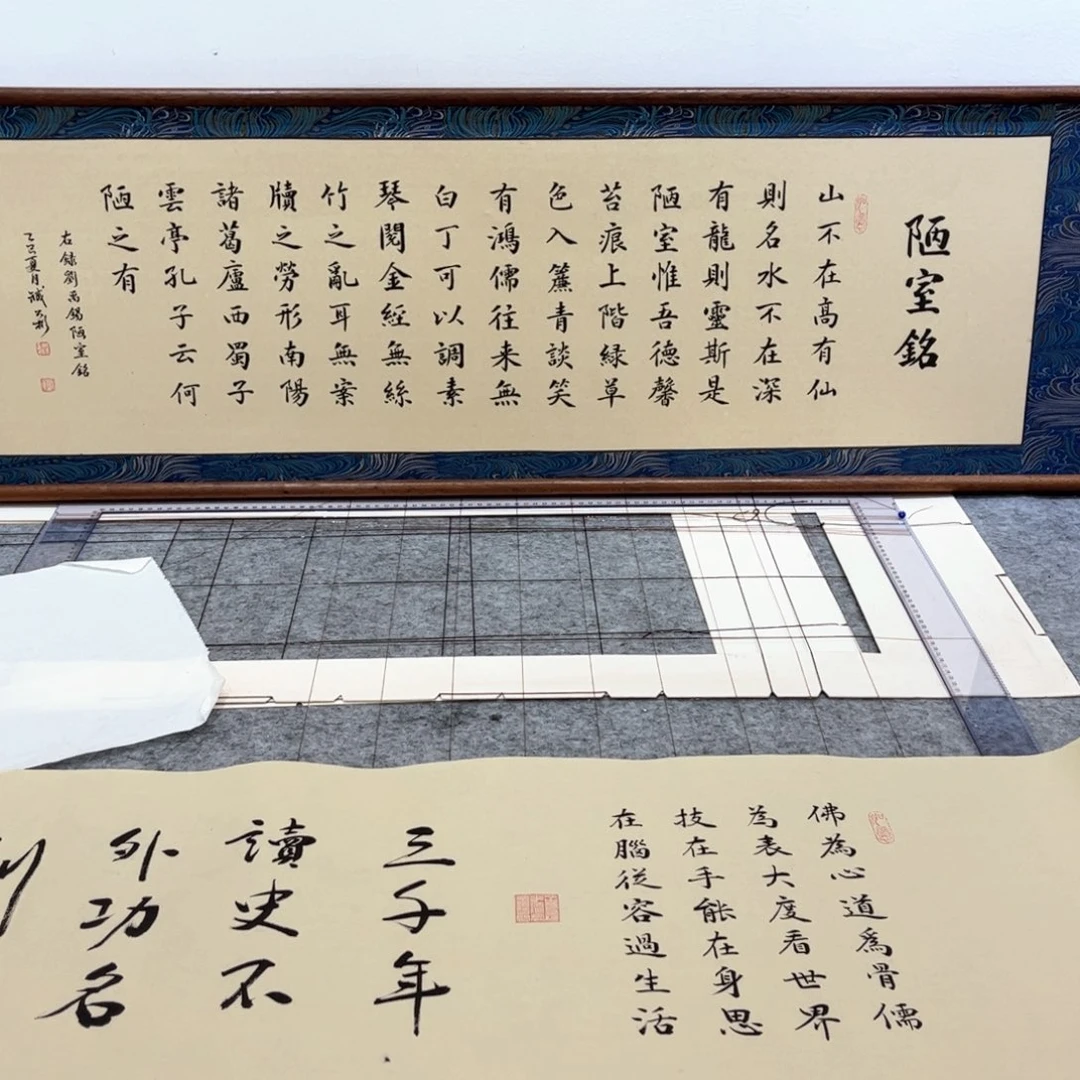 陋室銘
山不在高有仙
則名水不在深
有龍則靈斯是
陋室惟吾德馨
苔痕上階緑草
色入簾青談笑
有鴻儒往来無
白丁可以調素
琴閲金經無絲
竹之亂耳無案
牘之勞形南陽
諸葛廬西蜀子
雲亭孔子云何
陋之有
右録劉禹錫陋室銘
乙巳夏月
佛為心道爲骨儒
為表大度看世界
技在手能在身思
在腦從容過生活
三千年
讀史不
外功名